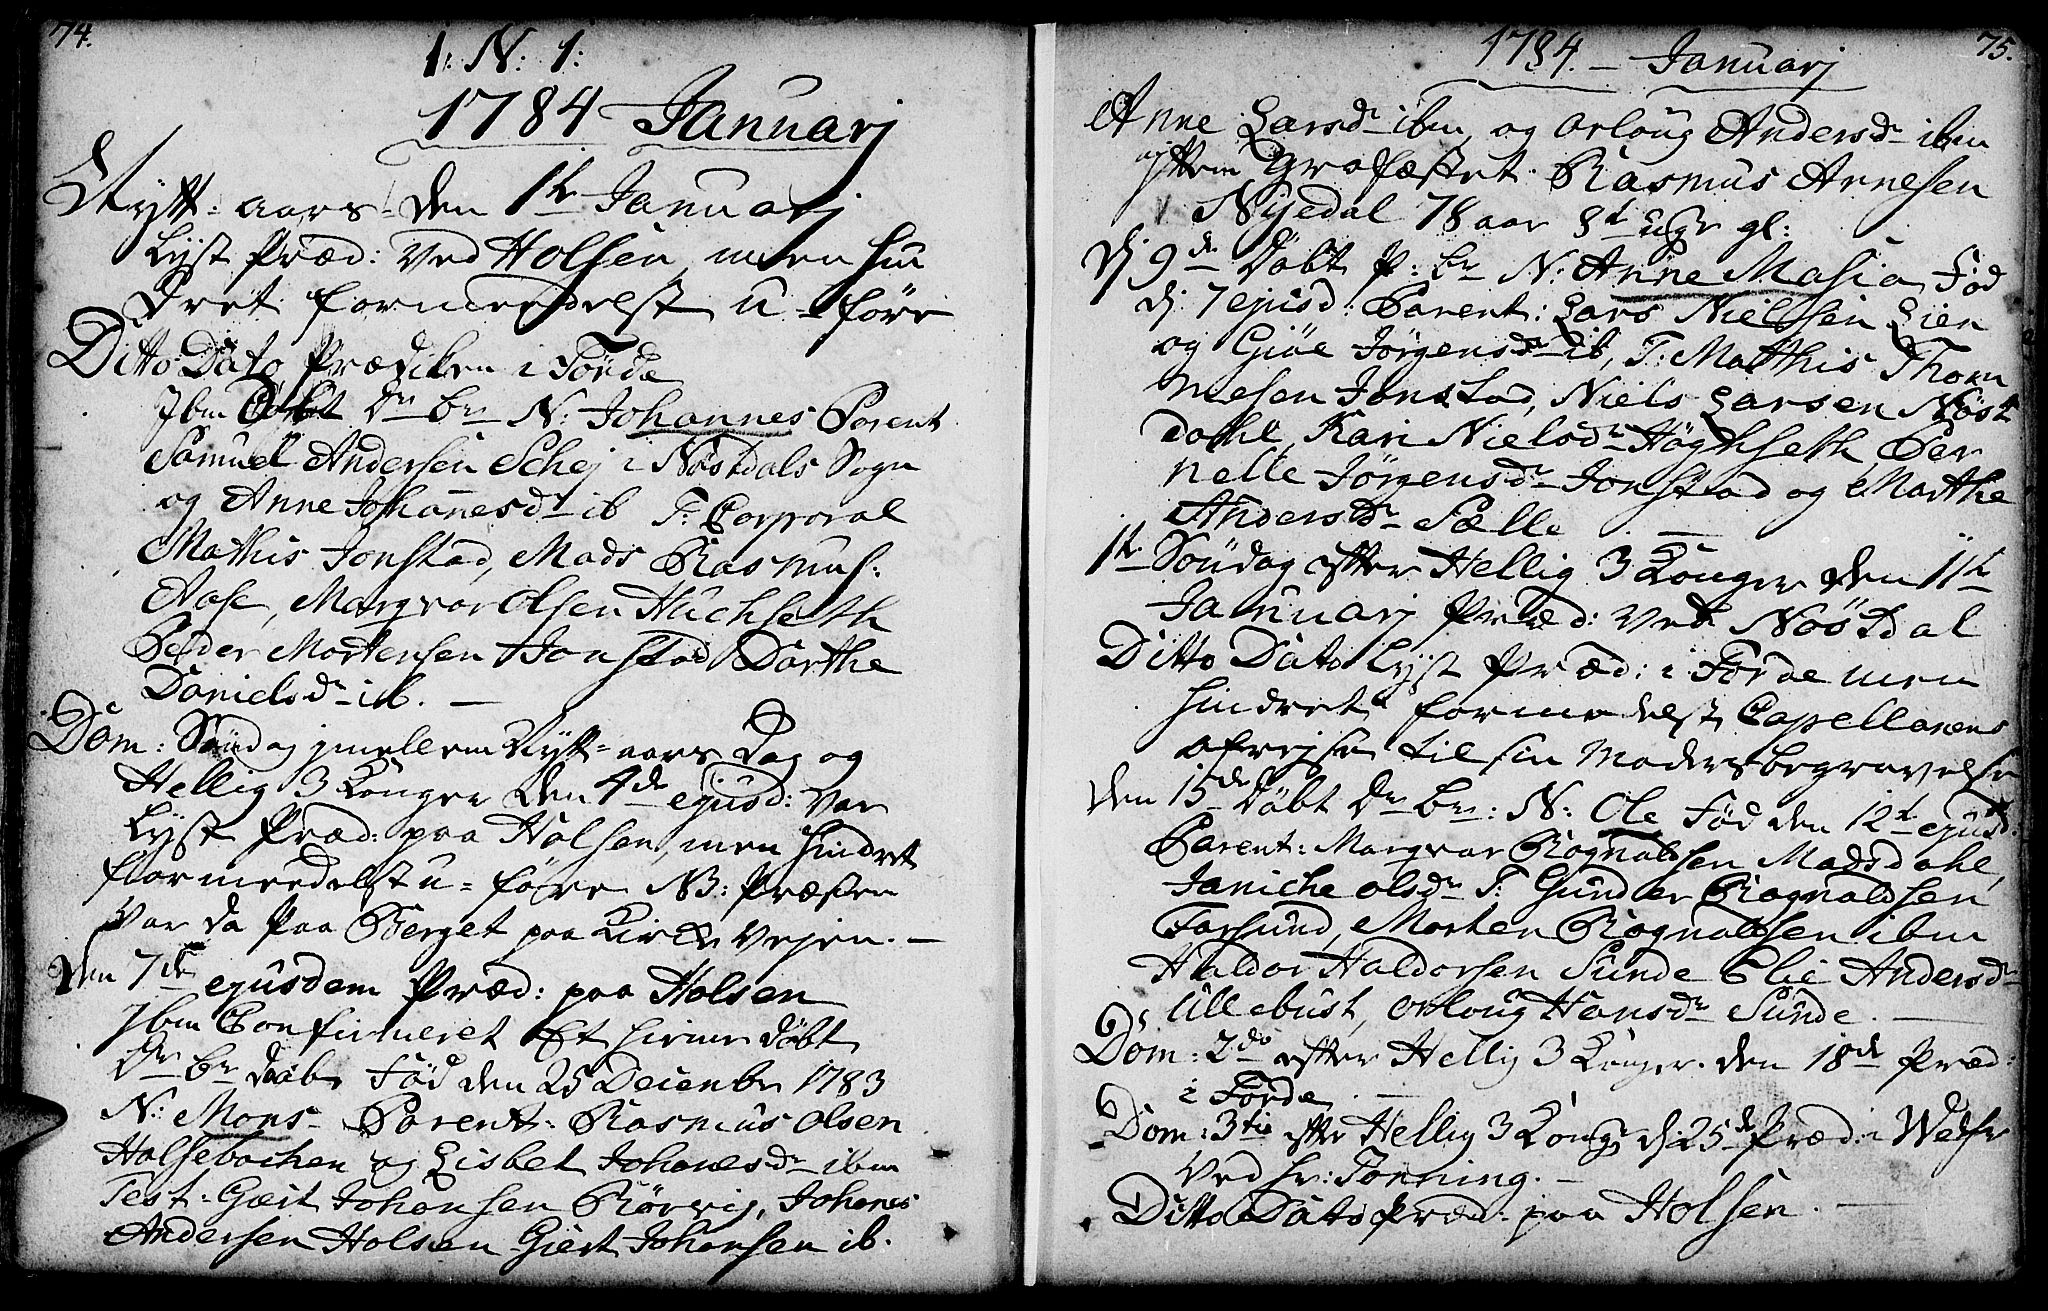 74.
1. N: 1:
1784 Januarj
Nytt-aars-den 1te Januarj
Lyst Præd: ved Holsen, men hin
dret formeedelst u-före
Ditto Dato Prædiken i Förde
Ibm Döbt Dr br N: Johannes Parent
Samuel Andersen Schej i Nöstdals Sogn
og Anne Johannesdr ib T: Corporal
Mathis Jonstad, Mads Rasmus:
Aase, Margvar Olsen Huchseth
Peder Mortensen Jonstad Dorthe
Danielsdr ib. —
Dom: Söndag jmellem Nytt-aars Dag og
Hellig 3 Konger den 4de ejusd: var
Lyst Præd: paa Holsen, men hindret
formeedelst u-före NB: Præsten
var da paa Berget paa Kirke vejen. —
den 7de ejusdem Præd: paa Holsen
Ibm Confirmeret Et hieme döbt
Dr br Födt den 25 December 1783
N: Mons - Parent: Rasmus Olsen
Holsebachen og Lisbet Johanesdr ibm
Test: Gært Johansen Rörvig, Johanes
Andersen Holsen Giert Johansen ib.
1784. — Januarj
75.
Anne Larsdr ibm, og Orloug Andersdr ibm
jttem Grafæstet Rasmus Arnesen
Nijedal 78 aar 8t uger gl:
Dj 9de Döbt P: br N: Anne Masia Föd
dj 7 ejusd: Parent: Lars Nielsen Lien
og Giöe Jörgensdr ib, T: Matthis Thom
mesen Jonstad, Niels Larsen Nöst
dahl, Kari Nielsdr Högseth, Per
nelle Jörgensdr Jonstad og Marthe
Andersdr Sælle. —
1te Söndag efter Hellig 3 Konger den 11te
Januarj Præd: ved Nöstdal
Ditto Dato Lyst Præd: i Förde men
hindret formedelst Capellanens
afrejse til sin Moders begravelse
den 15de Döbt Dr br: N: Ole Föd den 12t ejusd:
Parent: Margvar Rognaldsen Madsdahl,
Janiche Olsdr T: Gunder Rognaldsen
Farsund, Morten Rognaldsen ibm
Haldor Haldorsen Sunde Elie Andersdr
Ullebust, Orloug Hansdr Sunde. —
Dom: 2do efter Hellig 3 Konger den 18de Præd:
i Förde. —
Dom: 3tie efter Hellig 3 Kong: d: 25de Præd: i
ved hr: Tonning. —
Ditto Dato Præd: paa Holsen. —